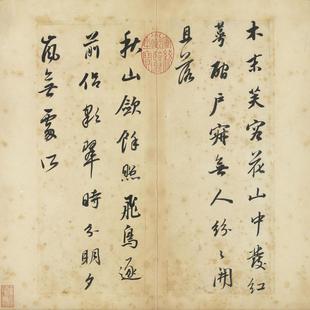 木末芙容花山中發紅
萼磵戶寂無人紛々開
且落
秋山歛餘照飛鳥逐
前侶彩翠時分明夕
嵐無處所